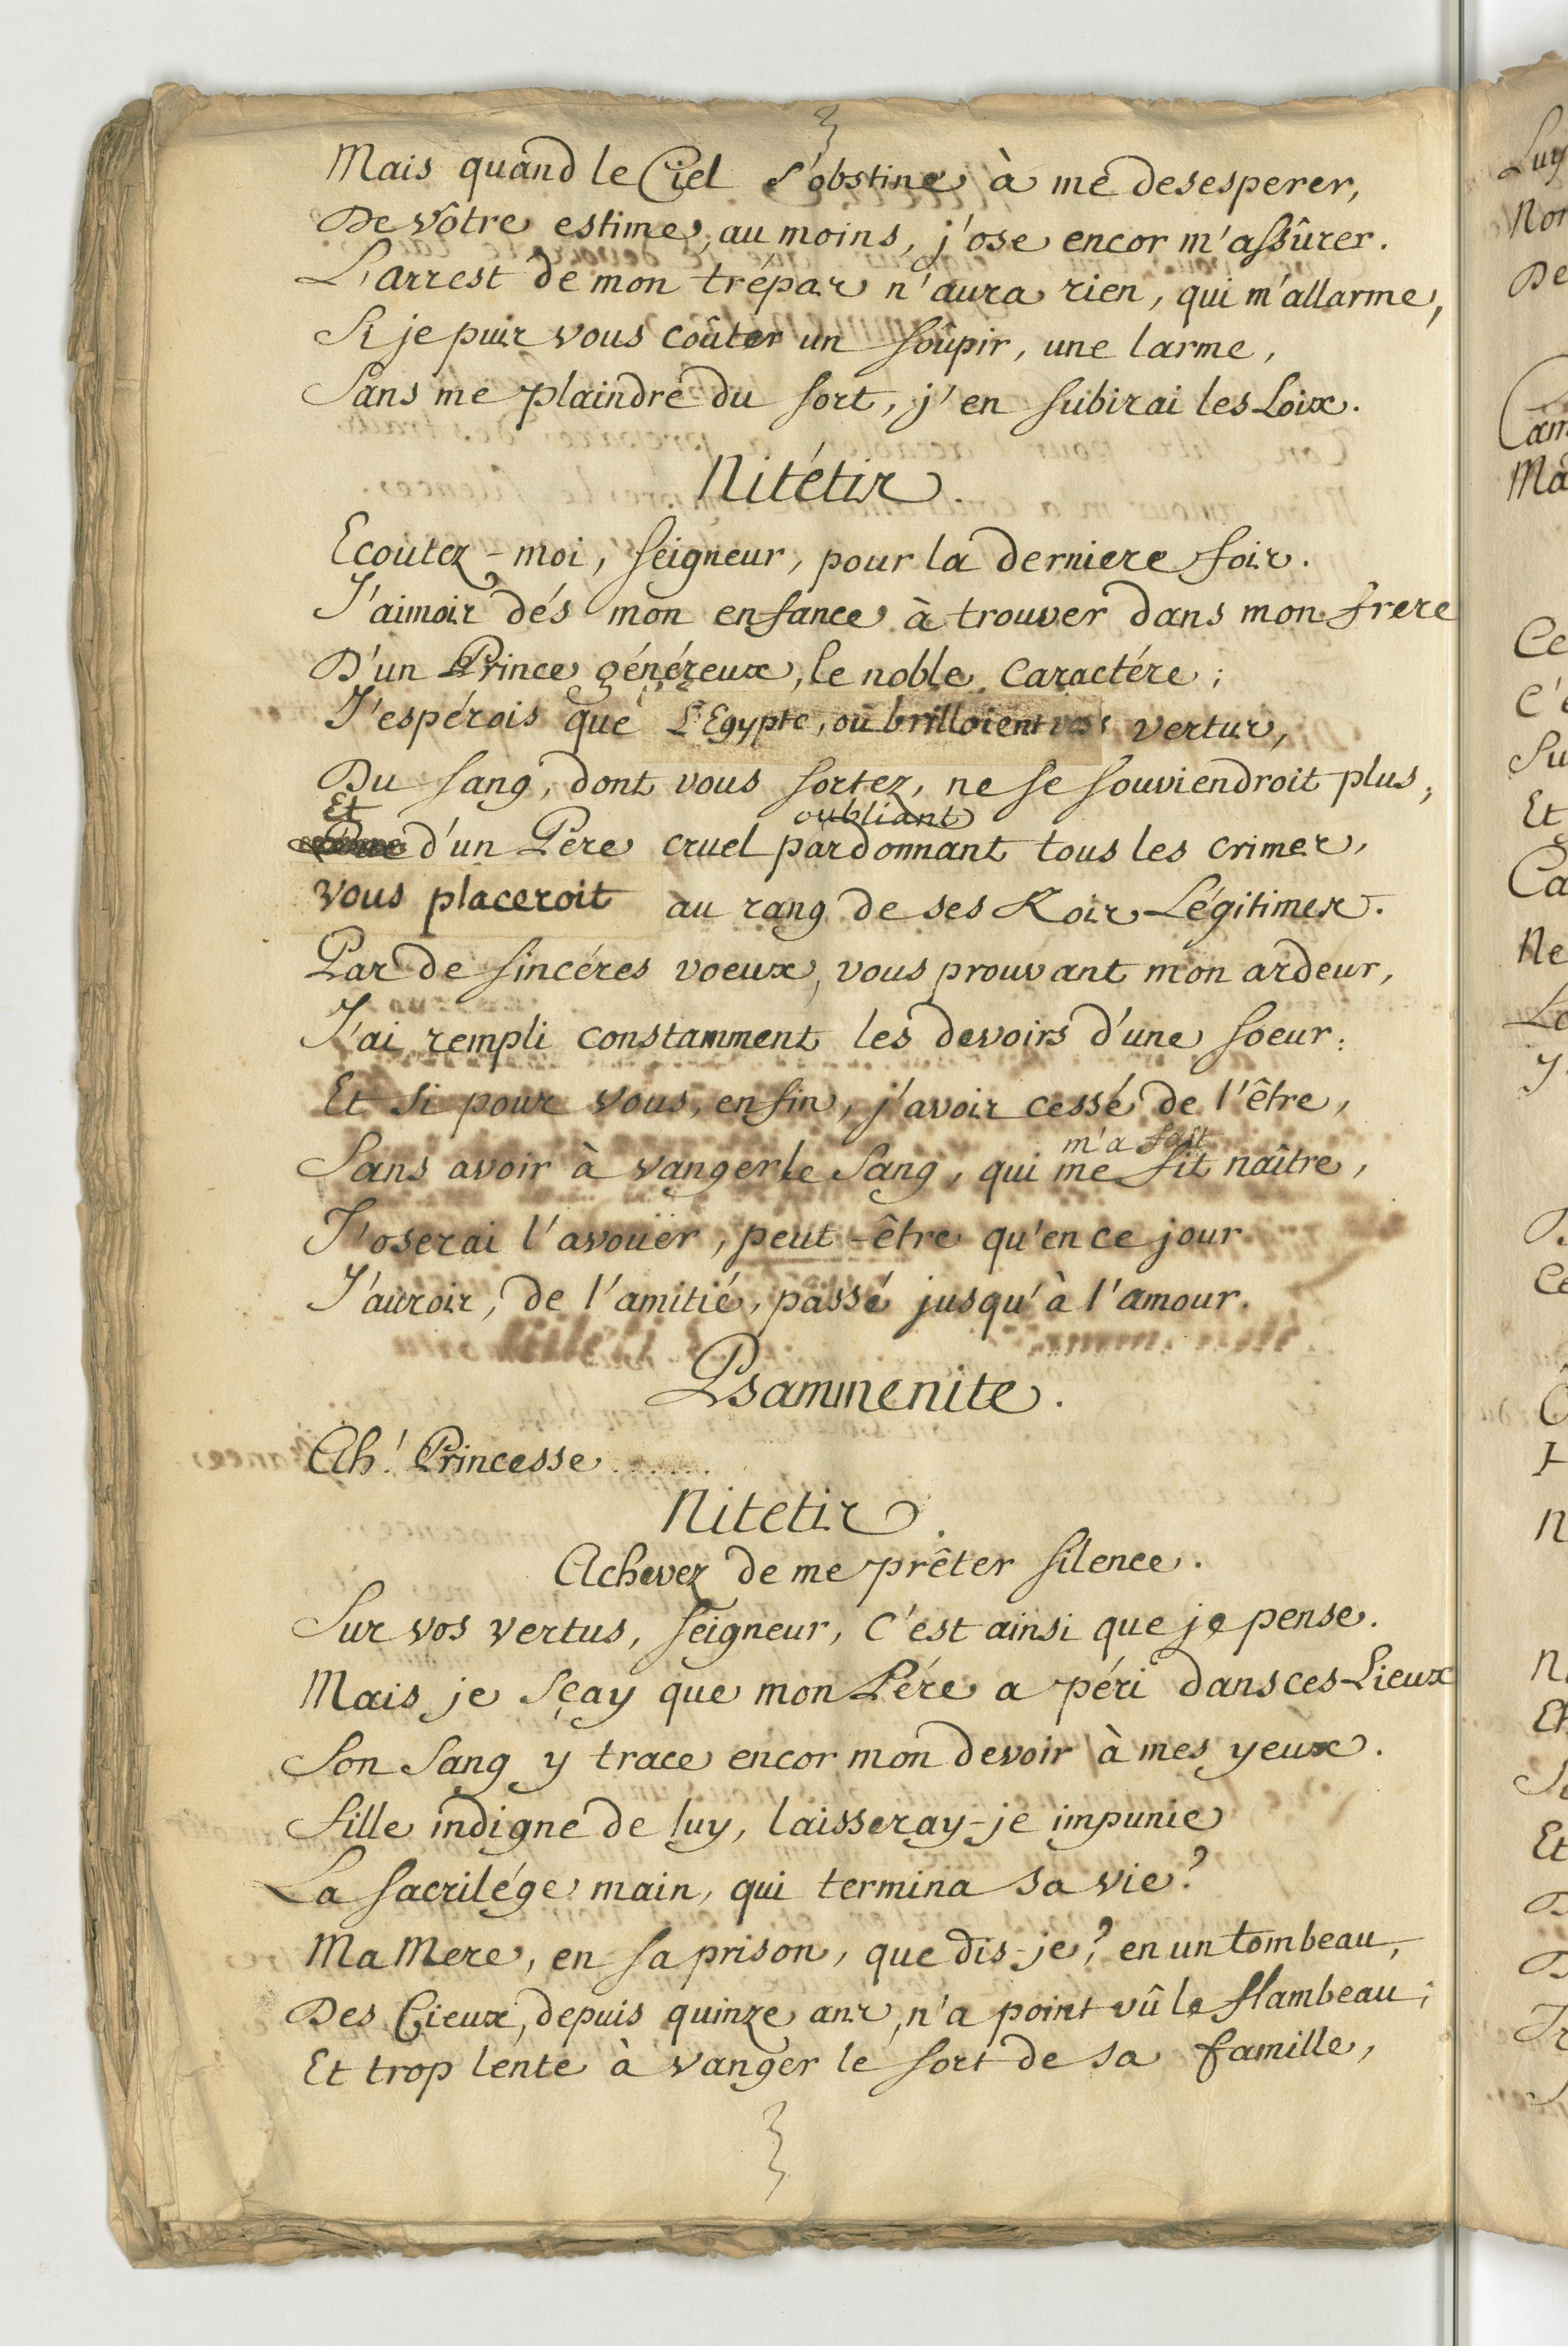 Mais quand le Ciel s'obstine à me desesperer,
De vôtre estime, au moins, j'ose encor m'assûrer.
L'arrest de mon trépas n'aura rien, qui m'allarme,
Si je puis vous coûter un soûpir, une larme,
Sans me plaindre du sort, j'en subirai les Loix.
Nitétis.
Ecoutez-moi, seigneur, pour la derniere fois.
J'aimois dés mon enfance à trouver dans mon frere
D'un Prince généreux, le noble caractére;
J'espérois que L'Egypte, où brilloient vos vertus,
Du sang, dont vous sortez, ne se souviendroit plus;
Et oubliant
d'un Pere cruel pardonnant tous les crimes,
vous placeroit au rang de ses Rois Légitimes.
Par de sincéres voeux, vous prouvant mon ardeur,
J'ai rempli constamment les devoirs d'une soeur:
Et si pour vous, enfin, j'avois cessé de l'être,
m'a fait
Sans avoir à vanger le sang, qui me fit naître,
J'oserai l'avoüer, peut-être qu'en ce jour
J'aurois, de l'amitié, passé jusqu'à l'amour.
Psammenite.
Ah! Princesse.......
Nitetis.
Achevez de me prêter silence.
Sur vos vertus, seigneur, c'est ainsi que je pense.
Mais je sçay que mon Pére a péri dans ces Lieux
Son sang y trace encor mon devoir à mes yeux.
fille indigne de luy, laisseray-je impunie
La sacrilége main, qui termina sa vie?
Ma Mere, en sa prison, que dis-je? en un tombeau,
Des Cieux, depuis quinze ans, n'a point vû le flambeau;
Et trop lente à vanger le sort de sa famille,